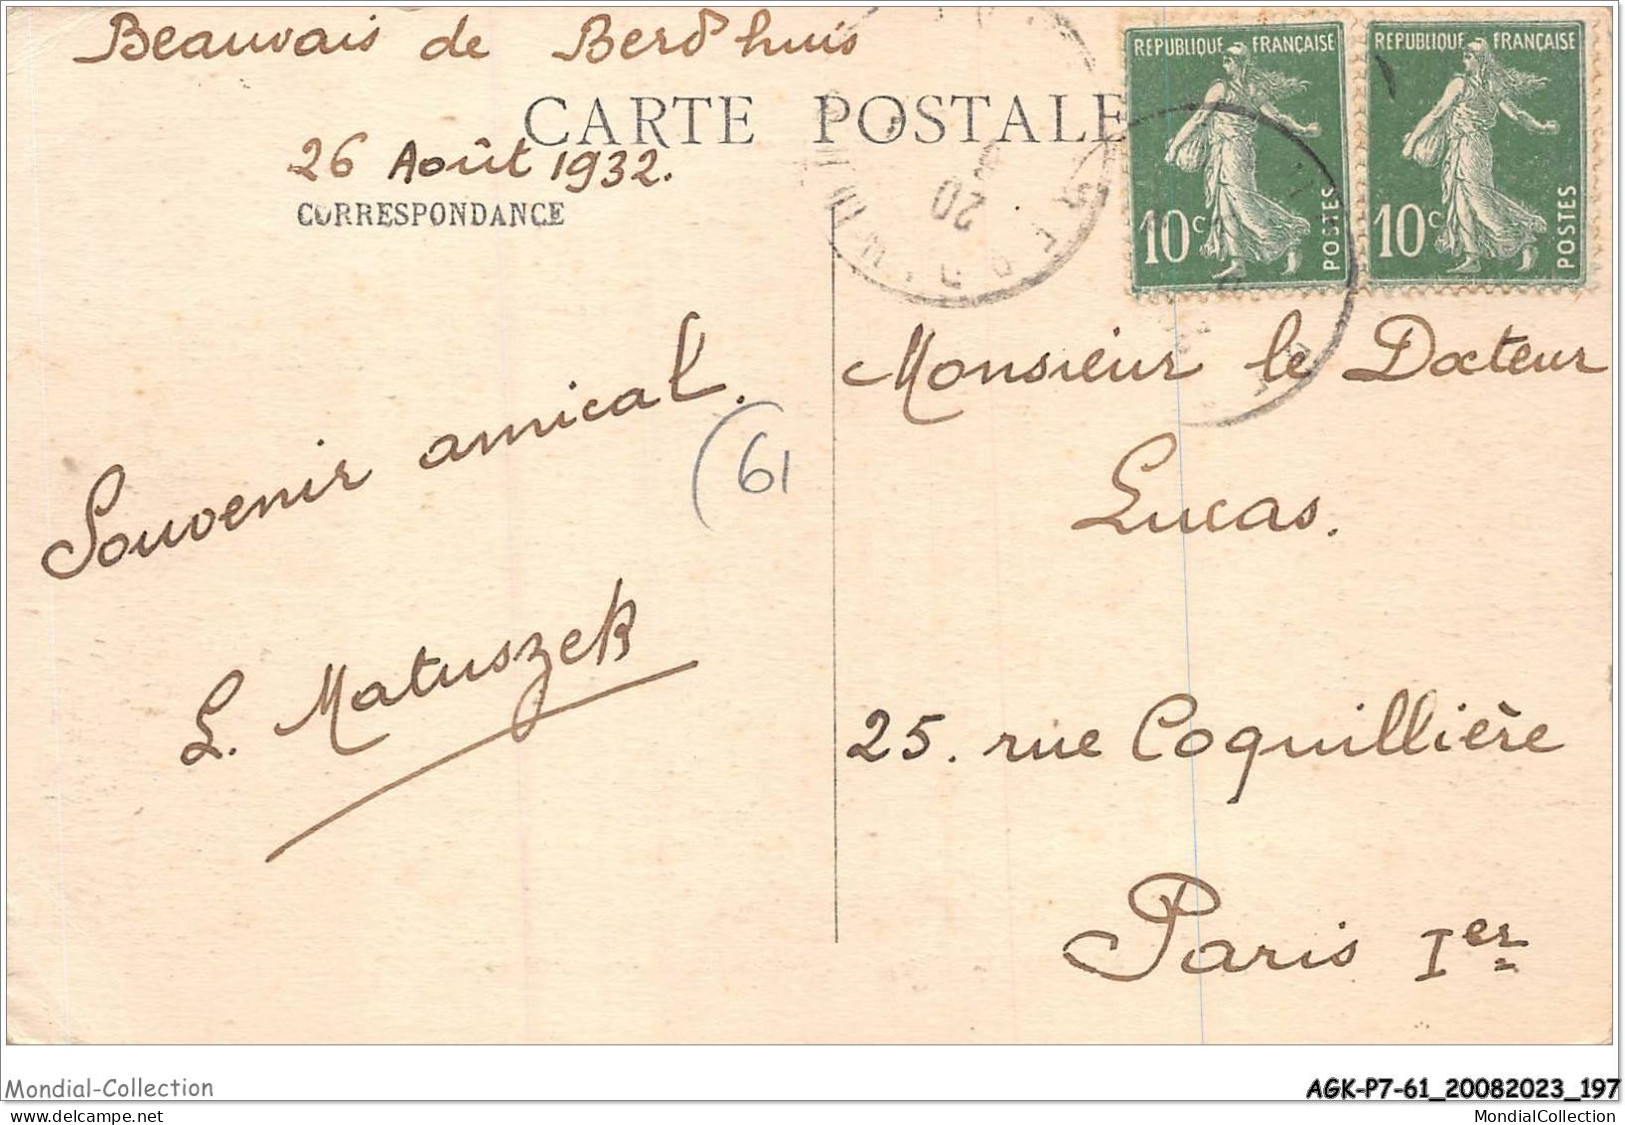 Beauvais de Berd'huis
CARTE POSTALE
26 Août 1932.
CORRESPONDANCE
REPUBLIQUE FRANÇAISE
10c
POSTES
REPUBLIQUE FRANÇAISE
10c
POSTES
20
Souvenir amical.
(61
L. Matuszek
Monsieur le Docteur
Lucas.
25. rue Coquillière
Paris Ier
Mondial-Collection
AGK-P7-61_20082023_197
www.delcampe.net
MondialCollection